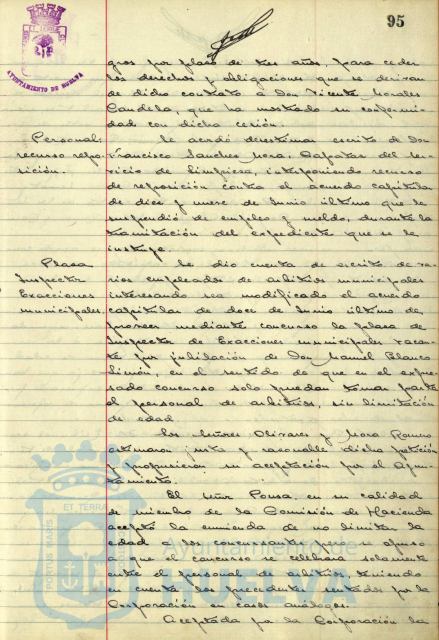 95
AYUNTAMIENTO DE HUELVA
gros por plazo de tres años, para ceder
los derechos y obligaciones que se derivan
de dicho contrato a Don Vicente Morales
Candela, que ha mostrado su conformi-
dad con dicha cesión.
Personal:
recurso repo-
sición.
Se acordó desestimar escrito de Don
Francisco Sanchez Mora, Capataz del ser-
vicio de limpieza, interponiendo recurso
de reposición contra el acuerdo capitular
de diez y nueve de Junio último que le
suspendió de empleo y sueldo, durante la
tramitación del expediente que se le
instruye.
Plaza
Inspector
Exacciones
municipales
Se dio cuenta de escrito de va-
rios empleados de arbitrios municipales
interesando sea modificado el acuerdo
capitular de doce de Junio último de
proveer mediante concurso la plaza de
Inspector de Exacciones municipales vacan-
te por jubilación de Don Manuel Blanco
Limón, en el sentido de que en el expre-
sado concurso solo puedan tomar parte
el personal de arbitrios, sin limitación
de edad.
Los Señores Olivares y Mora Romero
estimaron justa y razonable dicha petición
y propusieron su aceptación por el Ayun-
tamiento.
El Señor Ponsa, en su calidad
de miembro de la Comisión de Hacienda
aceptó la enmienda de no limitar la
edad a los concursantes pero se opuso
a que el concurso se celebrara solamente
entre el personal de arbitrios, teniendo
en cuenta los precedentes sentados por la
Corporación en casos análogos.
Aceptada por la Corporación la
PORTUS MARIS ET TERRAE
Ayuntamiento de
HUELVA